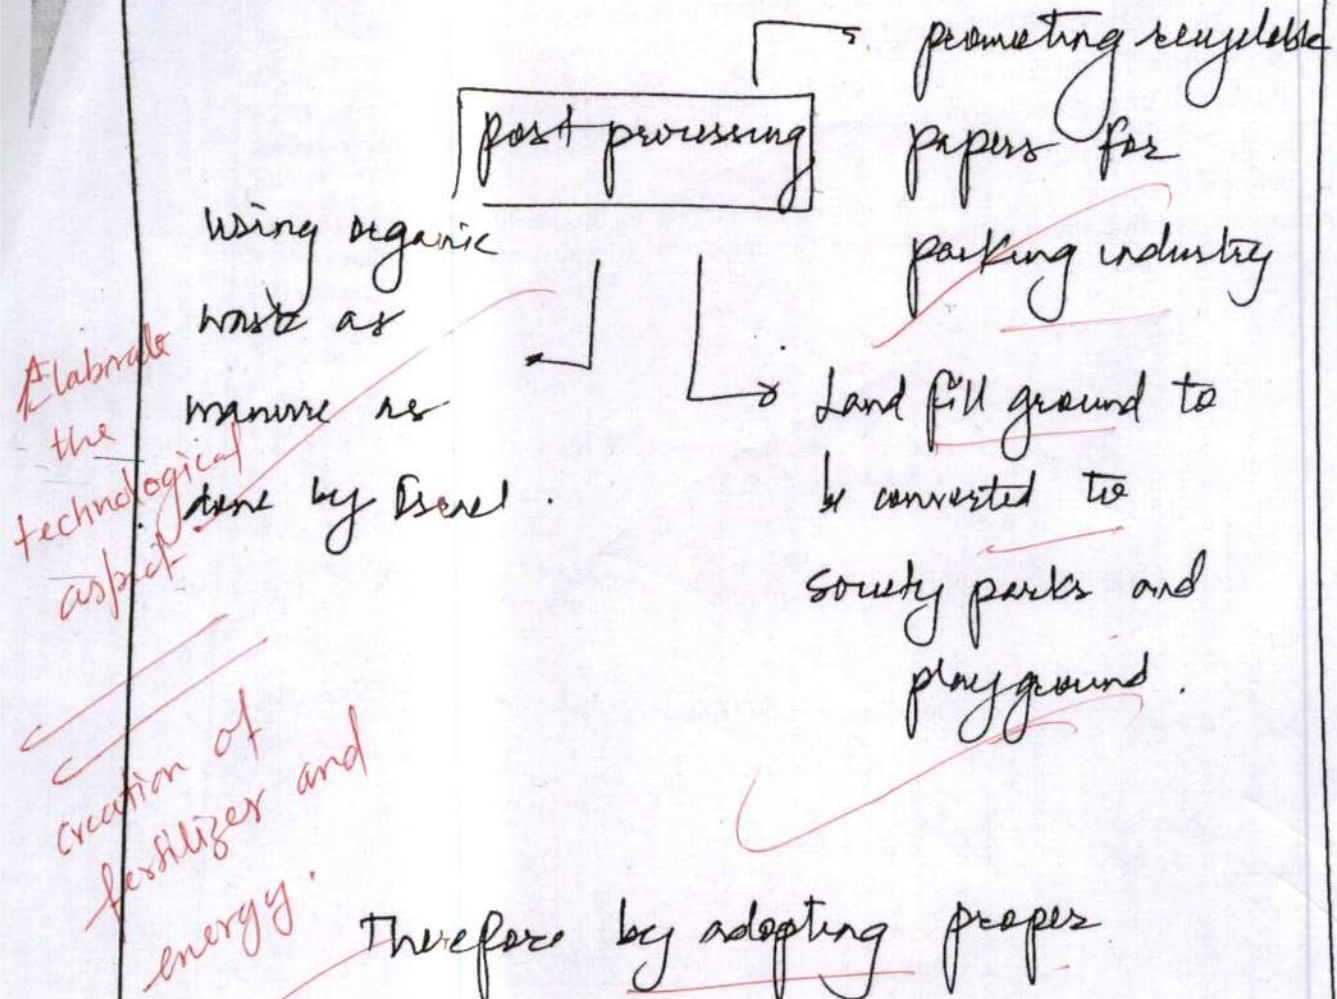 post processing
promoting recyclable
papers for
packing industry
using organic
waste as
manure as
done by
Land fill ground to
be converted to
society parks and
playground.
Elaborate
the
technological
aspect.
creation of
fertilizer and
energy.
Therefore by adopting proper